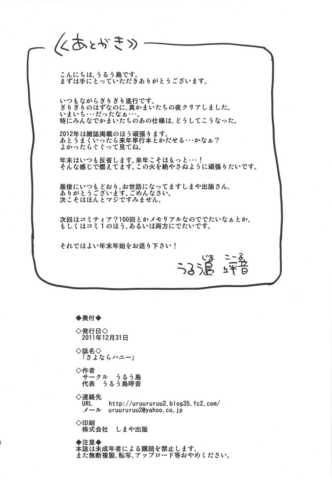 ≪あとがき≫
こんにちは、うるう島です。
まずは手にとっていただきありがとうございます。
いつもながらぎりぎり進行です。
ぎりぎりのはずなのに、真かまいたちの夜クリアしました。
いまいち…だったなぁ…。
特にみんなでかまいたちのあの仕様は、どうしてこうなった。
2012年は雑誌掲載のほう頑張ります。
あとうまくいったら来年単行本とかだせる…かなぁ？
よかったらぐぐって見てね。
年末はいつも反省します。来年こそはもっと…！
そんな感じで燃えてます。この火を絶やさぬように頑張りたいです。
最後にいつもどおり、お世話になってますしまや出版さん、
ありがとうございます、ごめんなさい。
次こそはほんとマジですみません。
次回はコミティア？100回とかメモリアルなのででたいなぁとか、
もしくはコミ１のほう、あるいは両方にでたいです。
それではよい年末年始をお送り下さい！
うるう島 呼音
◆奥付◆
◇発行日◇
2011年12月31日
◇誌名◇
「さよならハニー」
◇作者
サークル うるう島
代表 うるう島呼音
◇連絡先
URL http://uruururuu2.blog35.fc2.com/
メール uruururuu2@yahoo.co.jp
◇印刷
株式会社 しまや出版
◆注意◆
本誌は未成年者による購読を禁止します。
また無断複製、転写、アップロード等おやめください。